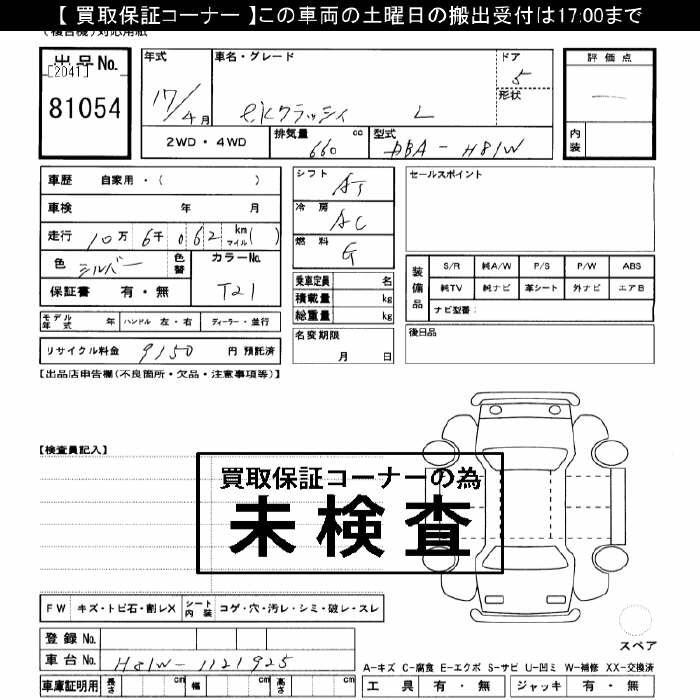 【 買取保証コーナー 】この車両の土曜日の搬出受付は17:00まで
(複合機)対応用紙
出品No.
[2041]
81054
年式
17/4月
車名・グレード
ekクラッシィ L
ドア
5
形状
評価点
—
内装
2WD・4WD
排気量 cc
660
型式
DBA-H81W
車歴 自家用・( )
車検 年 月
走行 10万 6千 062 km マイル( )
色 シルバー 色替
カラーNo.
T21
保証書 有・無
モデル年式 年 ハンドル 左・右 ディーラー・並行
リサイクル料金 9150 円 預託済
シフト AT
冷房 AC
燃料 G
乗車定員 名
積載量 kg
総重量 kg
名変期限
月 日
セールスポイント
装備品
S/R 純A/W P/S P/W ABS
純TV 純ナビ 革シート 外ナビ エアB
ナビ型番:
後日品
【出品店申告欄(不良箇所・欠品・注意事項等)】
【検査員記入】
買取保証コーナーの為
未検査
FW キズ・トビ石・割レX シート内装 コゲ・穴・汚レ・シミ・破レ・スレ
登録No.
車台No. H81W-1121925
車庫証明用 長さ cm 幅 cm 高さ cm
スペア
A-キズ C-腐食 E-エクボ S-サビ U-凹ミ W-補修 XX-交換済
工具 有・無 ジャッキ 有・無